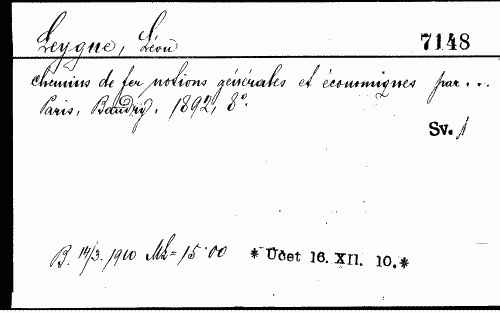 Leygue, Léon 7148
Chemins de fer notions générales et économiques par...
Paris, Baudry, 1892, 8°.
Sv. 1
B. 14/3. 1910 Mk = 15·00 * Učet 16. XII. 10. *